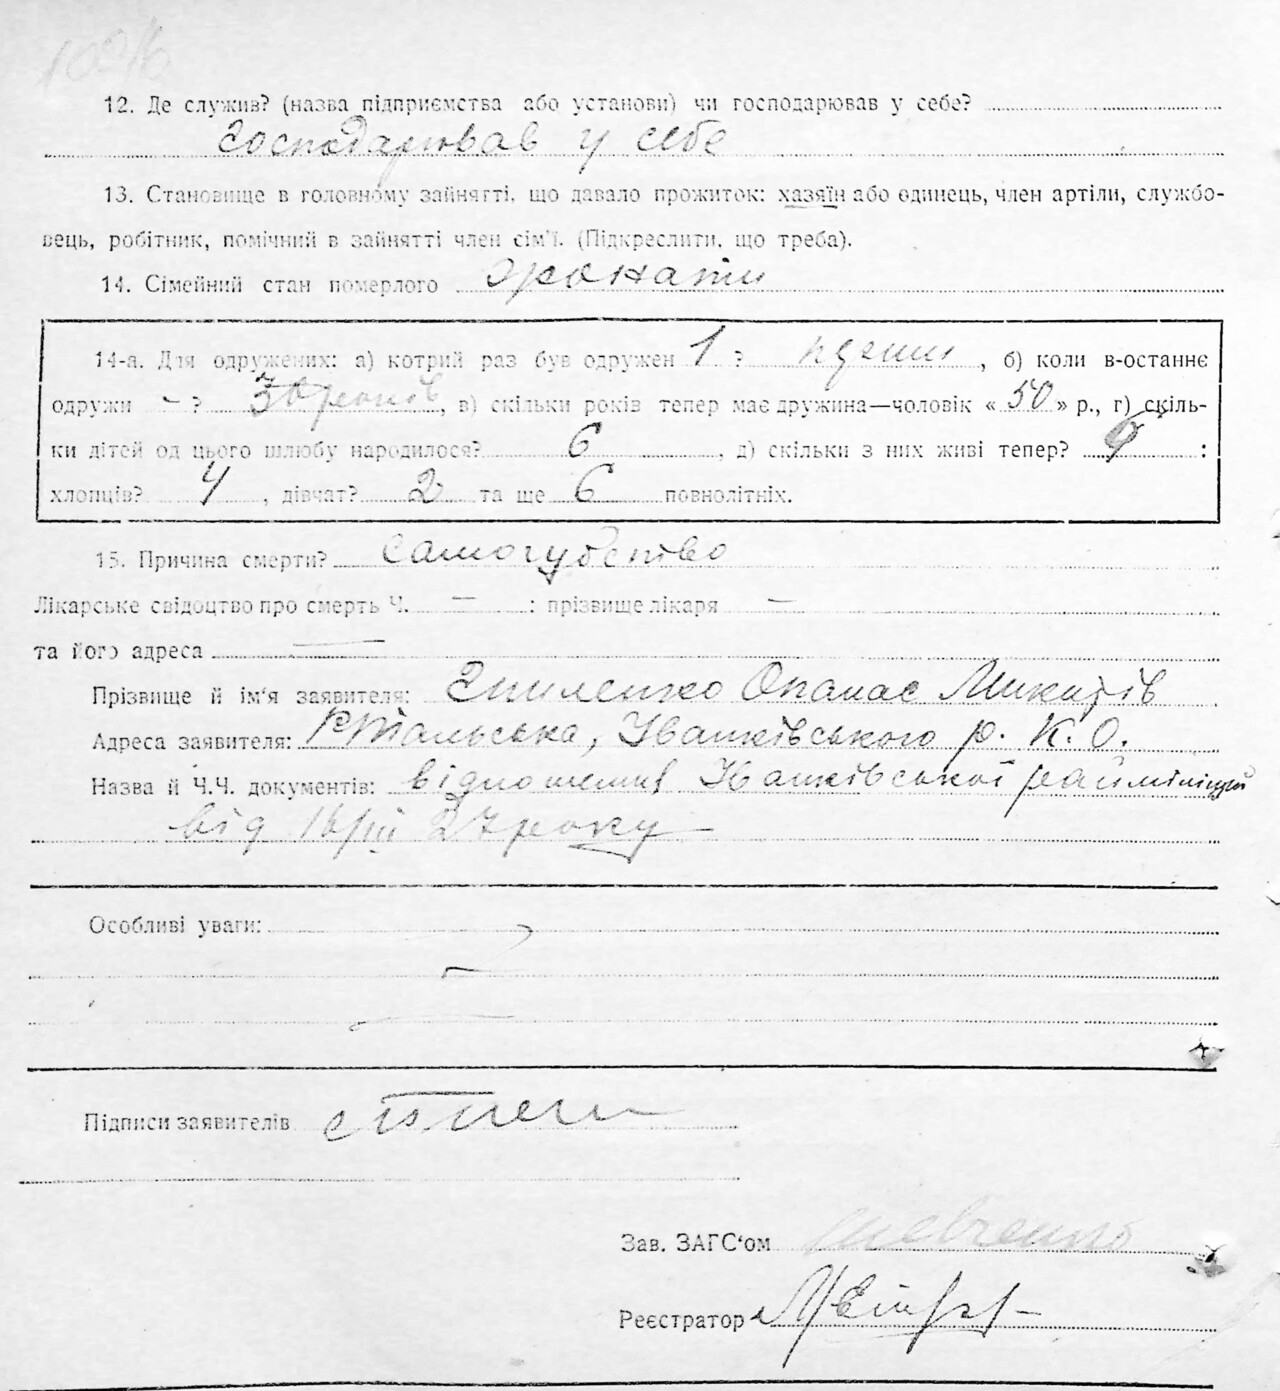 12. Де служив? (назва підприємства або установи) чи господарював у себе?
господарював у себе
13. Становище в головному зайнятті, що давало прожиток: хазяїн або одинець, член артіли, службо-
вець, робітник, помічний в зайнятті член сім'ї. (Підкреслити, що треба).
14. Сімейний стан померлого жонати
14-а. Для одружених: а) котрий раз був одружен 1 ? , б) коли в-останнє
одружи - ? 30 років, в) скільки років тепер має дружина—чоловік «50» р., г) скіль-
ки дітей од цього шлюбу народилося? 6 , д) скільки з них живі тепер? 6 :
хлопців? 4 , дівчат? 2 та ще 6 повнолітніх.
15. Причина смерти? самогубство
Лікарське свідоцтво про смерть Ч. — : прізвище лікаря —
та його адреса —
Прізвище й ім'я заявителя: Опанас Микитів
Адреса заявителя: Іванківського р. К. О.
Назва й Ч.Ч. документів: відношення Іванківської райміліції
від 16/III 27 року
Особливі уваги:
Підписи заявителів
Зав. ЗАГС'ом Шевченко
Реєстратор